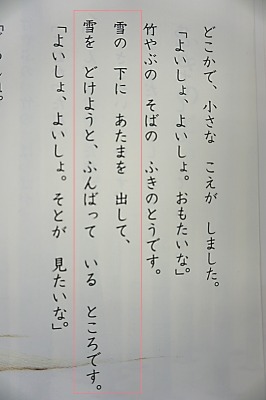 どこかで、小さな こえが しました。
「よいしょ、よいしょ。おもたいな。」
竹やぶの そばの ふきのとうです。
雪の 下に あたまを 出して、
雪を どけようと、ふんばって いる ところです。
「よいしょ、よいしょ。そとが 見たいな。」